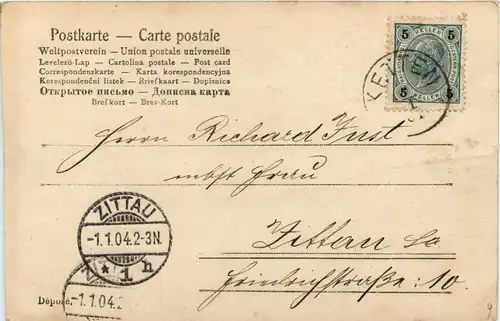 Postkarte — Carte postale
Weltpostverein — Union postale universelle
Levelező-Lap — Cartolina postale — Post card
Correspondenzkarte — Karta korespondencyjna
Korespondenční lístek — Briefkaart — Dopisnica
Открытое письмо — Дописна карта
Brefkort — Brev-Kort
5 5
HELLER HELLER
5 5
KETTEN
1
Herrn Richard Just
nebst Frau
ZITTAU
-1.1.04.2-3N.
* 1 h
Zittau Sa
Friedrichstraße 10.
Déposé.
-1.1.04.2
9